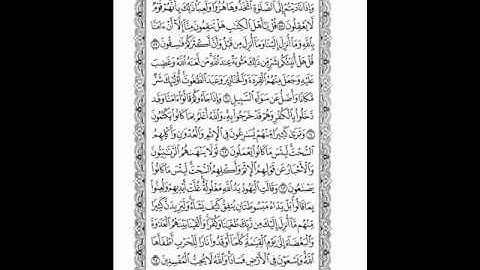 وَإِذَا نَادَيْتُمْ إِلَى ٱلصَّلَوٰةِ ٱتَّخَذُوهَا هُزُوًا وَلَعِبًا ذَٰلِكَ بِأَنَّهُمْ قَوْمٌ
لَّا يَعْقِلُونَ ٥٨ قُلْ يَٰٓأَهْلَ ٱلْكِتَٰبِ هَلْ تَنقِمُونَ مِنَّآ إِلَّآ أَنْ ءَامَنَّا
بِٱللَّهِ وَمَآ أُنزِلَ إِلَيْنَا وَمَآ أُنزِلَ مِن قَبْلُ وَأَنَّ أَكْثَرَكُمْ فَٰسِقُونَ ٥٩
قُلْ هَلْ أُنَبِّئُكُم بِشَرٍّ مِّن ذَٰلِكَ مَثُوبَةً عِندَ ٱللَّهِ مَن لَّعَنَهُ ٱللَّهُ وَغَضِبَ
عَلَيْهِ وَجَعَلَ مِنْهُمُ ٱلْقِرَدَةَ وَٱلْخَنَازِيرَ وَعَبَدَ ٱلطَّٰغُوتَ أُو۟لَٰٓئِكَ شَرٌّ
مَّكَانًا وَأَضَلُّ عَن سَوَآءِ ٱلسَّبِيلِ ٦٠ وَإِذَا جَآءُوكُمْ قَالُوٓا۟ ءَامَنَّا وَقَد
دَّخَلُوا۟ بِٱلْكُفْرِ وَهُمْ قَدْ خَرَجُوا۟ بِهِۦ وَٱللَّهُ أَعْلَمُ بِمَا كَانُوا۟ يَكْتُمُونَ
٦١ وَتَرَىٰ كَثِيرًا مِّنْهُمْ يُسَٰرِعُونَ فِى ٱلْإِثْمِ وَٱلْعُدْوَٰنِ وَأَكْلِهِمُ
ٱلسُّحْتَ لَبِئْسَ مَا كَانُوا۟ يَعْمَلُونَ ٦٢ لَوْلَا يَنْهَىٰهُمُ ٱلرَّبَّٰنِيُّونَ
وَٱلْأَحْبَارُ عَن قَوْلِهِمُ ٱلْإِثْمَ وَأَكْلِهِمُ ٱلسُّحْتَ لَبِئْسَ مَا كَانُوا۟
يَصْنَعُونَ ٦٣ وَقَالَتِ ٱلْيَهُودُ يَدُ ٱللَّهِ مَغْلُولَةٌ غُلَّتْ أَيْدِيهِمْ وَلُعِنُوا۟
بِمَا قَالُوا۟ بَلْ يَدَاهُ مَبْسُوطَتَانِ يُنفِقُ كَيْفَ يَشَآءُ وَلَيَزِيدَنَّ كَثِيرًا
مِّنْهُم مَّآ أُنزِلَ إِلَيْكَ مِن رَّبِّكَ طُغْيَٰنًا وَكُفْرًا وَأَلْقَيْنَا بَيْنَهُمُ ٱلْعَدَٰوَةَ
وَٱلْبَغْضَآءَ إِلَىٰ يَوْمِ ٱلْقِيَٰمَةِ كُلَّمَآ أَوْقَدُوا۟ نَارًا لِّلْحَرْبِ أَطْفَأَهَا
ٱللَّهُ وَيَسْعَوْنَ فِى ٱلْأَرْضِ فَسَادًا وَٱللَّهُ لَا يُحِبُّ ٱلْمُفْسِدِينَ ٦٤